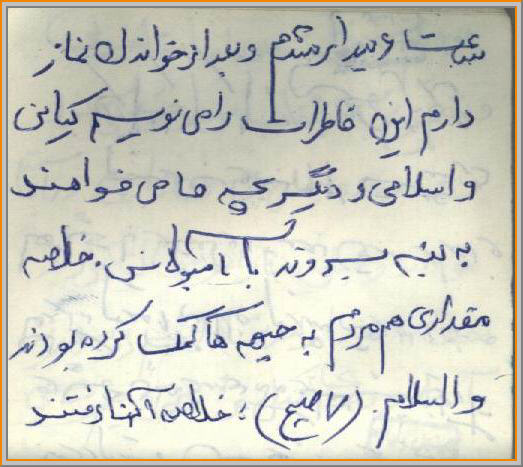 ساعت ۶ بیدار شدم و بعد از خواندن نماز
دارم این خاطرات را می نویسم کیانی
و اسلامی و دیگر بچه ها می خواهند
به بنه بروند با آمبولانس. خلاصه
مقداری هم مردم به جبهه ها کمک کرده بودند
والسلام. (۷ صبح) ؛ خلاصه آنها رفتند